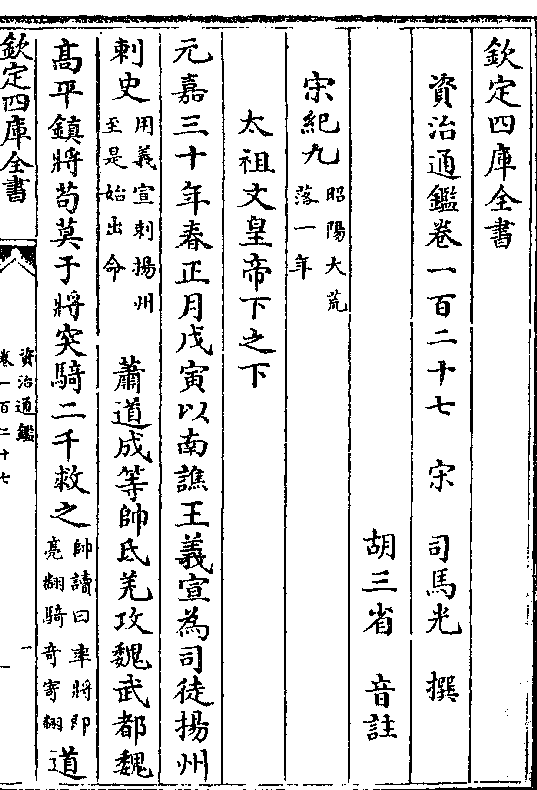 欽定四庫全書
資治通鑑卷一百二十七　宋　司馬光　撰
胡三省　音註
宋紀九昭陽大荒落一年
太祖文皇帝下之下
元嘉三十年春正月戊寅以南譙王義宣為司徒揚州
刺史用義宣刺揚州至是始出命　蕭道成等帥氐羌攻魏武都魏
高平鎮將苟莫于將突騎二千救之帥讀曰率將即亮翻騎奇寄翻道
欽定四庫全書
資治通鑑
卷一百二十七
一